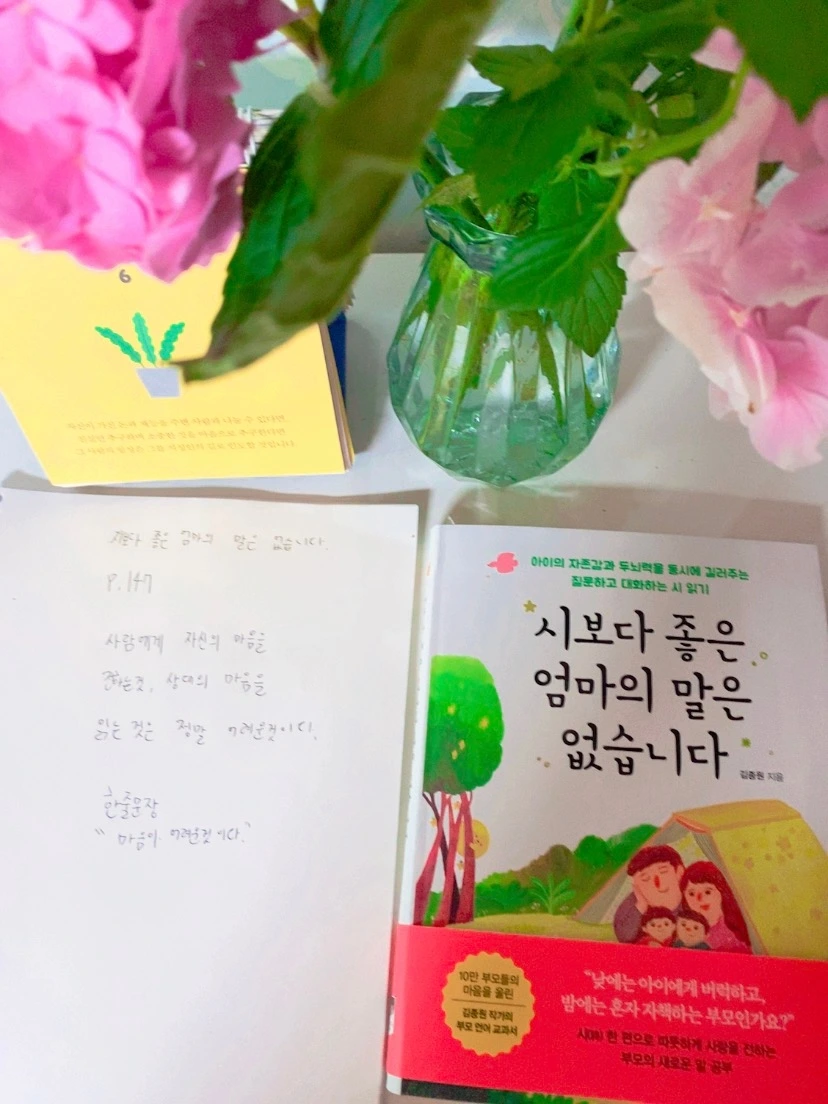 6
시보다 좋은 엄마의 말은 없습니다.
P.147
사람에게 자신의 마음을
전하는것, 상대의 마음을
읽는 것은 정말 어려운것이다.
한줄문장
" 마음이 어려운것이다."
아이의 자존감과 두뇌력을 동시에 길러주는
질문하고 대화하는 시 읽기
시보다 좋은
엄마의 말은
없습니다
김종원 지음
10만 부모들의
마음을 울린
김종원 작가의
부모 언어 교과서
“낮에는 아이에게 버럭하고,
밤에는 혼자 자책하는 부모인가요?”
시(詩) 한 편으로 따뜻하게 사랑을 전하는
부모의 새로운 말 공부